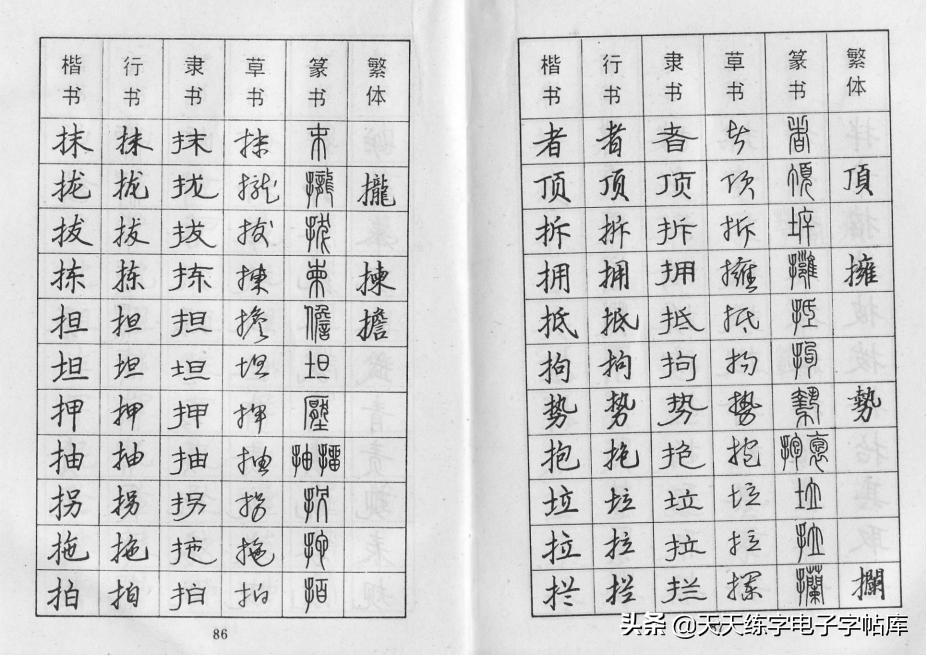 楷书 行书 隶书 草书 篆书 繁体
抹 抹 抹 抹 末
拢 拢 拢 攏 攏 攏
拔 拔 拔 拔 拔
拣 拣 拣 揀 柬 揀
担 担 担 擔 儋 擔
坦 坦 坦 坦 坦
押 押 押 押
抽 抽 抽 抽 抽
拐 拐 拐 拐
拖 拖 拖 拖
拍 拍 拍 拍
86
楷书 行书 隶书 草书 篆书 繁体
者 者 者 者 者
顶 顶 顶 顶 頂 頂
拆 拆 拆 拆
拥 拥 拥 擁 擁 擁
抵 抵 抵 抵 抵
拘 拘 拘 拘 拘
势 势 势 勢 勢
抱 抱 抱 抱
垃 垃 垃 垃 垃
拉 拉 拉 拉 拉
拦 拦 拦 攔 攔 攔
头条 @天天练字电子字帖库